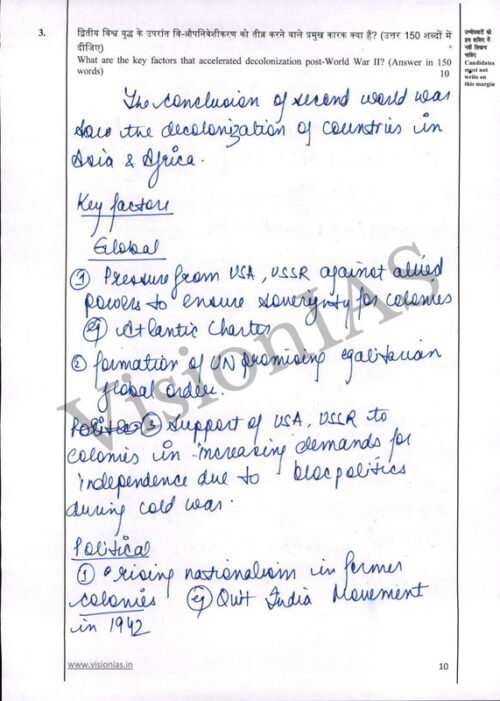 3.
द्वितीय विश्व युद्ध के उपरांत वि-औपनिवेशीकरण को तीव्र करने वाले प्रमुख कारक क्या हैं? (उत्तर 150 शब्दों में
दीजिए)
What are the key factors that accelerated decolonization post-World War II? (Answer in 150
words)
10
उम्मीदवारों को
इस हाशिए में
नहीं लिखना
चाहिए
Candidates
must not
write on
this margin
The conclusion of second world war
saw the decolonization of countries in
Asia & Africa.
Key factors
Global
① Pressure from USA, USSR against allied
powers to ensure soverignty for colonies
eg Atlantic Charter
② formation of UN promising egalitarian
global order.
③ Support of USA, USSR to
colonies in increasing demands for
independence due to bloc politics
during cold war.
Political
① rising nationalism in former
colonies eg Quit India Movement
in 1942
VisionIAS
www.visionias.in
10